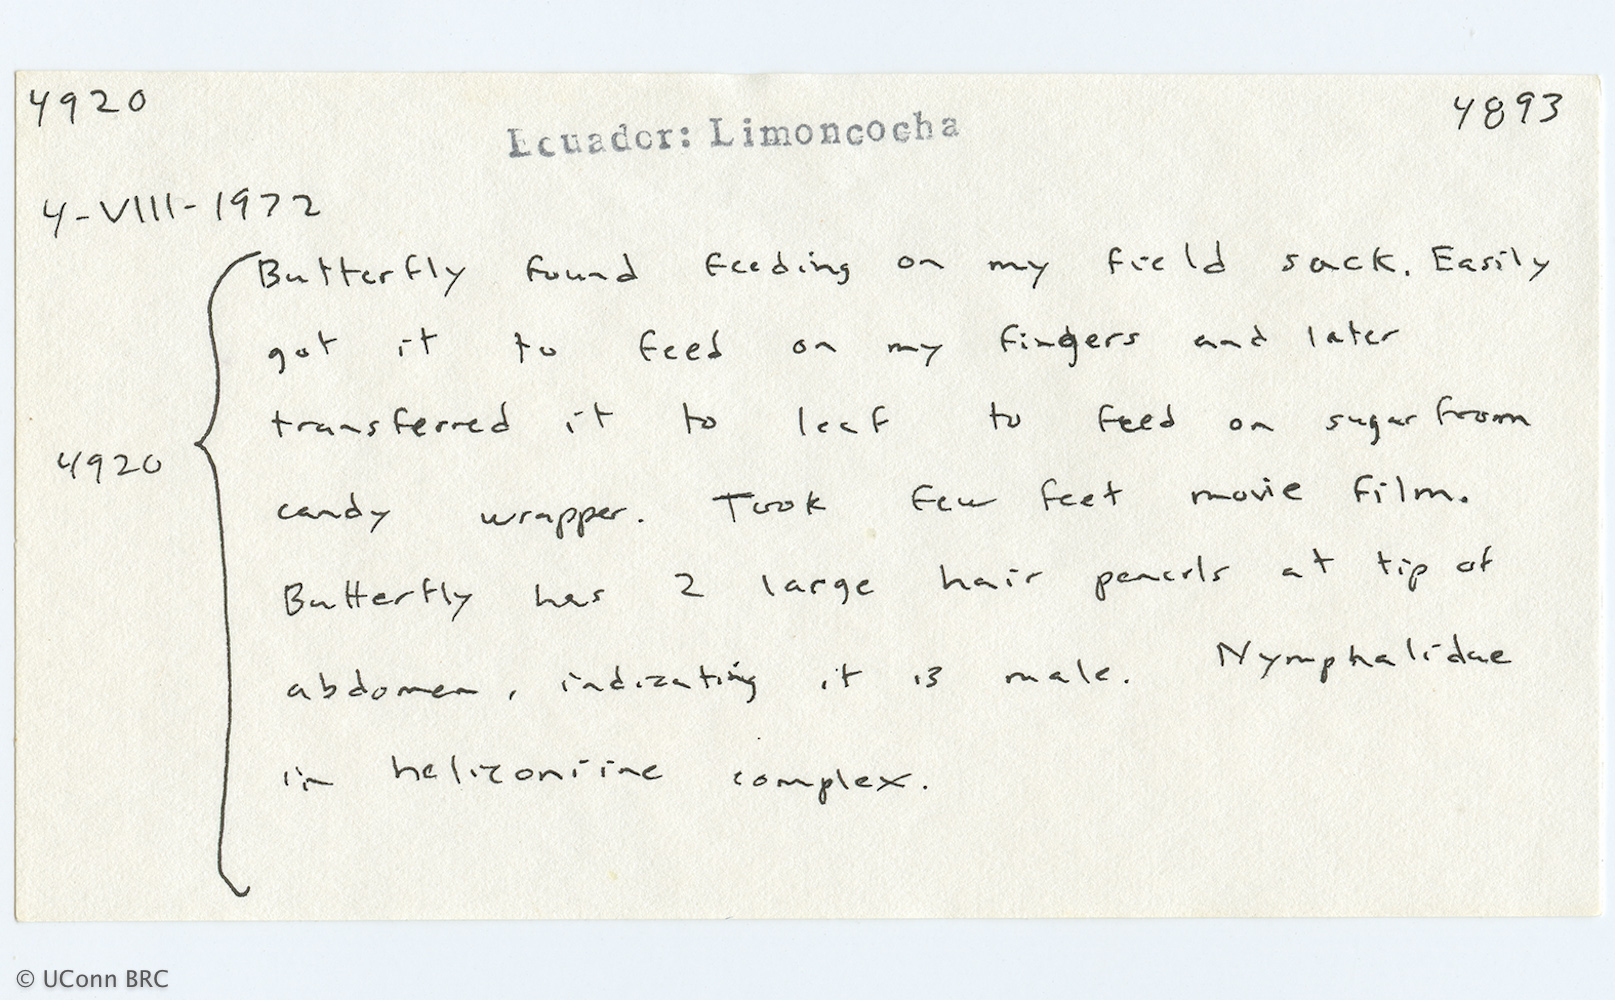 4920
4893
Ecuador: Limoncocha
4-VIII-1972
Butterfly found feeding on my field sack. Easily
got it to feed on my fingers and later
transferred it to leaf to feed on sugar from
4920
candy wrapper. Took few feet movie film.
Butterfly has 2 large hair pencils at tip of
abdomen, indicating it is male. Nymphalidae
in heliconiine complex.
© UConn BRC